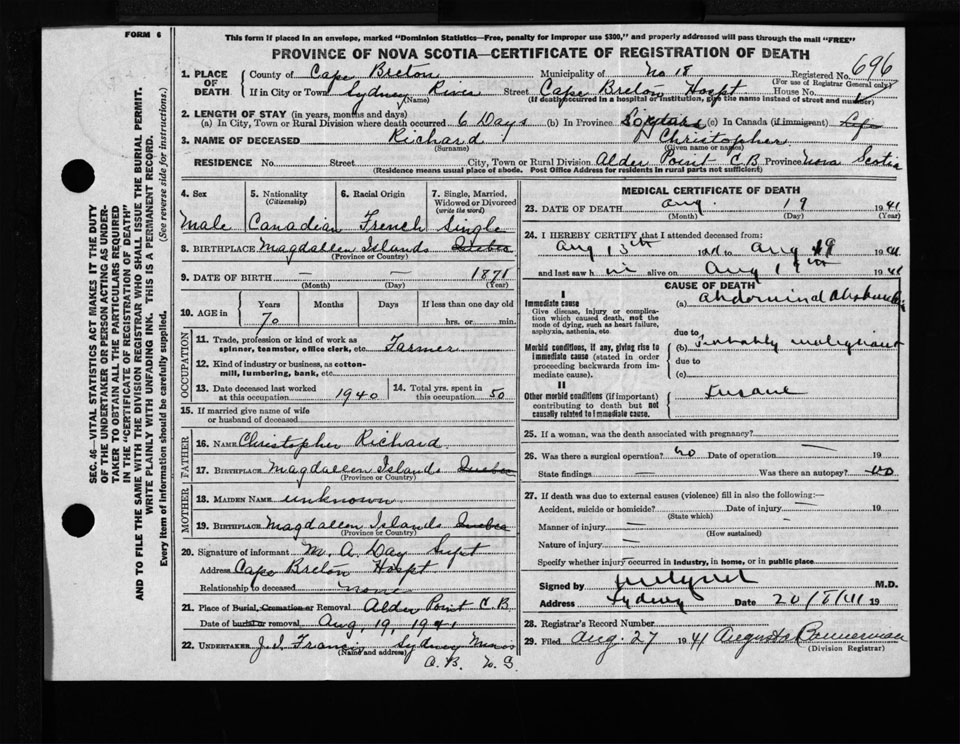 FORM 6
This form if placed in an envelope, marked "Dominion Statistics—Free, penalty for improper use $300," and properly addressed will pass through the mail "FREE"
PROVINCE OF NOVA SCOTIA—CERTIFICATE OF REGISTRATION OF DEATH
SEC. 46—VITAL STATISTICS ACT MAKES IT THE DUTY
OF THE UNDERTAKER OR PERSON ACTING AS UNDER-
TAKER TO OBTAIN ALL THE PARTICULARS REQUIRED
IN THE "CERTIFICATE OF REGISTRATION OF DEATH"
AND TO FILE THE SAME WITH THE DIVISION REGISTRAR WHO SHALL ISSUE THE BURIAL PERMIT.
WRITE PLAINLY WITH UNFADING INK. THIS IS A PERMANENT RECORD.
Every item of information should be carefully supplied. (See reverse side for instructions.)
1. PLACE OF DEATH County of Cape Breton Municipality of No 18 Registered No. 696
(For use of Registrar General only)
If in City or Town Sydney River Street Cape Breton Hospt House No.
(Name) (If death occurred in a hospital or institution, give the name instead of street and number)
2. LENGTH OF STAY (in years, months and days)
(a) In City, Town or Rural Division where death occurred 6 Days (b) In Province (c) In Canada (if immigrant) Life
3. NAME OF DECEASED Richard Christopher
(Surname) (Given name or names)
RESIDENCE No. Street City, Town or Rural Division Alder Point C.B Province Nova Scotia
(Residence means usual place of abode. Post Office Address for residents in rural parts not sufficient)
4. Sex 5. Nationality (Citizenship) 6. Racial Origin 7. Single, Married, Widowed or Divorced (write the word)
Male Canadian French Single
8. BIRTHPLACE Magdallen Islands Quebec
(Province or Country)
9. DATE OF BIRTH — — 1871
(Month) (Day) (Year)
10. AGE Years Months Days If less than one day old
70 hrs. or min.
OCCUPATION
11. Trade, profession or kind of work as spinner, teamster, office clerk, etc. Farmer
12. Kind of industry or business, as cotton-mill, lumbering, bank, etc.
13. Date deceased last worked at this occupation 1940 14. Total yrs. spent in this occupation 50
15. If married give name of wife or husband of deceased
FATHER
16. NAME Christopher Richard
17. BIRTHPLACE Magdallen Islands Quebec
(Province or Country)
MOTHER
18. MAIDEN NAME unknown
19. BIRTHPLACE Magdallen Islands Quebec
(Province or Country)
20. Signature of informant M. A. Day Supt
Address Cape Breton Hospt
Relationship to deceased none
21. Place of Burial, Cremation or Removal Alder Point C.B
Date of burial or removal Aug 19, 1941
22. UNDERTAKER J. J. Francis Sydney Mines
(Name and address)
C.B. N S
MEDICAL CERTIFICATE OF DEATH
23. DATE OF DEATH Aug. 19 1941
(Month) (Day) (Year)
24. I HEREBY CERTIFY that I attended deceased from:
Aug 13th Aug 19 1941
and last saw h im alive on Aug 19 1941
CAUSE OF DEATH
I
Immediate cause
Give disease, injury, or complication which caused death, not the mode of dying, such as heart failure, asphyxia, asthenia, etc.
(a) abdominal
due to
Morbid conditions, if any, giving rise to immediate cause (stated in order proceeding backwards from immediate cause).
(b) Probably malignant
due to
(c)
II
Other morbid conditions (if important) contributing to death but not causally related to immediate cause.
Insane
25. If a woman, was the death associated with pregnancy?
26. Was there a surgical operation? no Date of operation —
State findings — Was there an autopsy? no
27. If death was due to external causes (violence) fill in also the following:—
Accident, suicide or homicide? — Date of injury — 19
(State which)
Manner of injury —
(How sustained)
Nature of injury —
Specify whether injury occurred in industry, in home, or in public place
Signed by M.D.
Address Sydney Date 20/8/41 19
28. Registrar's Record Number
29. Filed Aug. 27 1941 Augusta Bannerman
(Division Registrar)